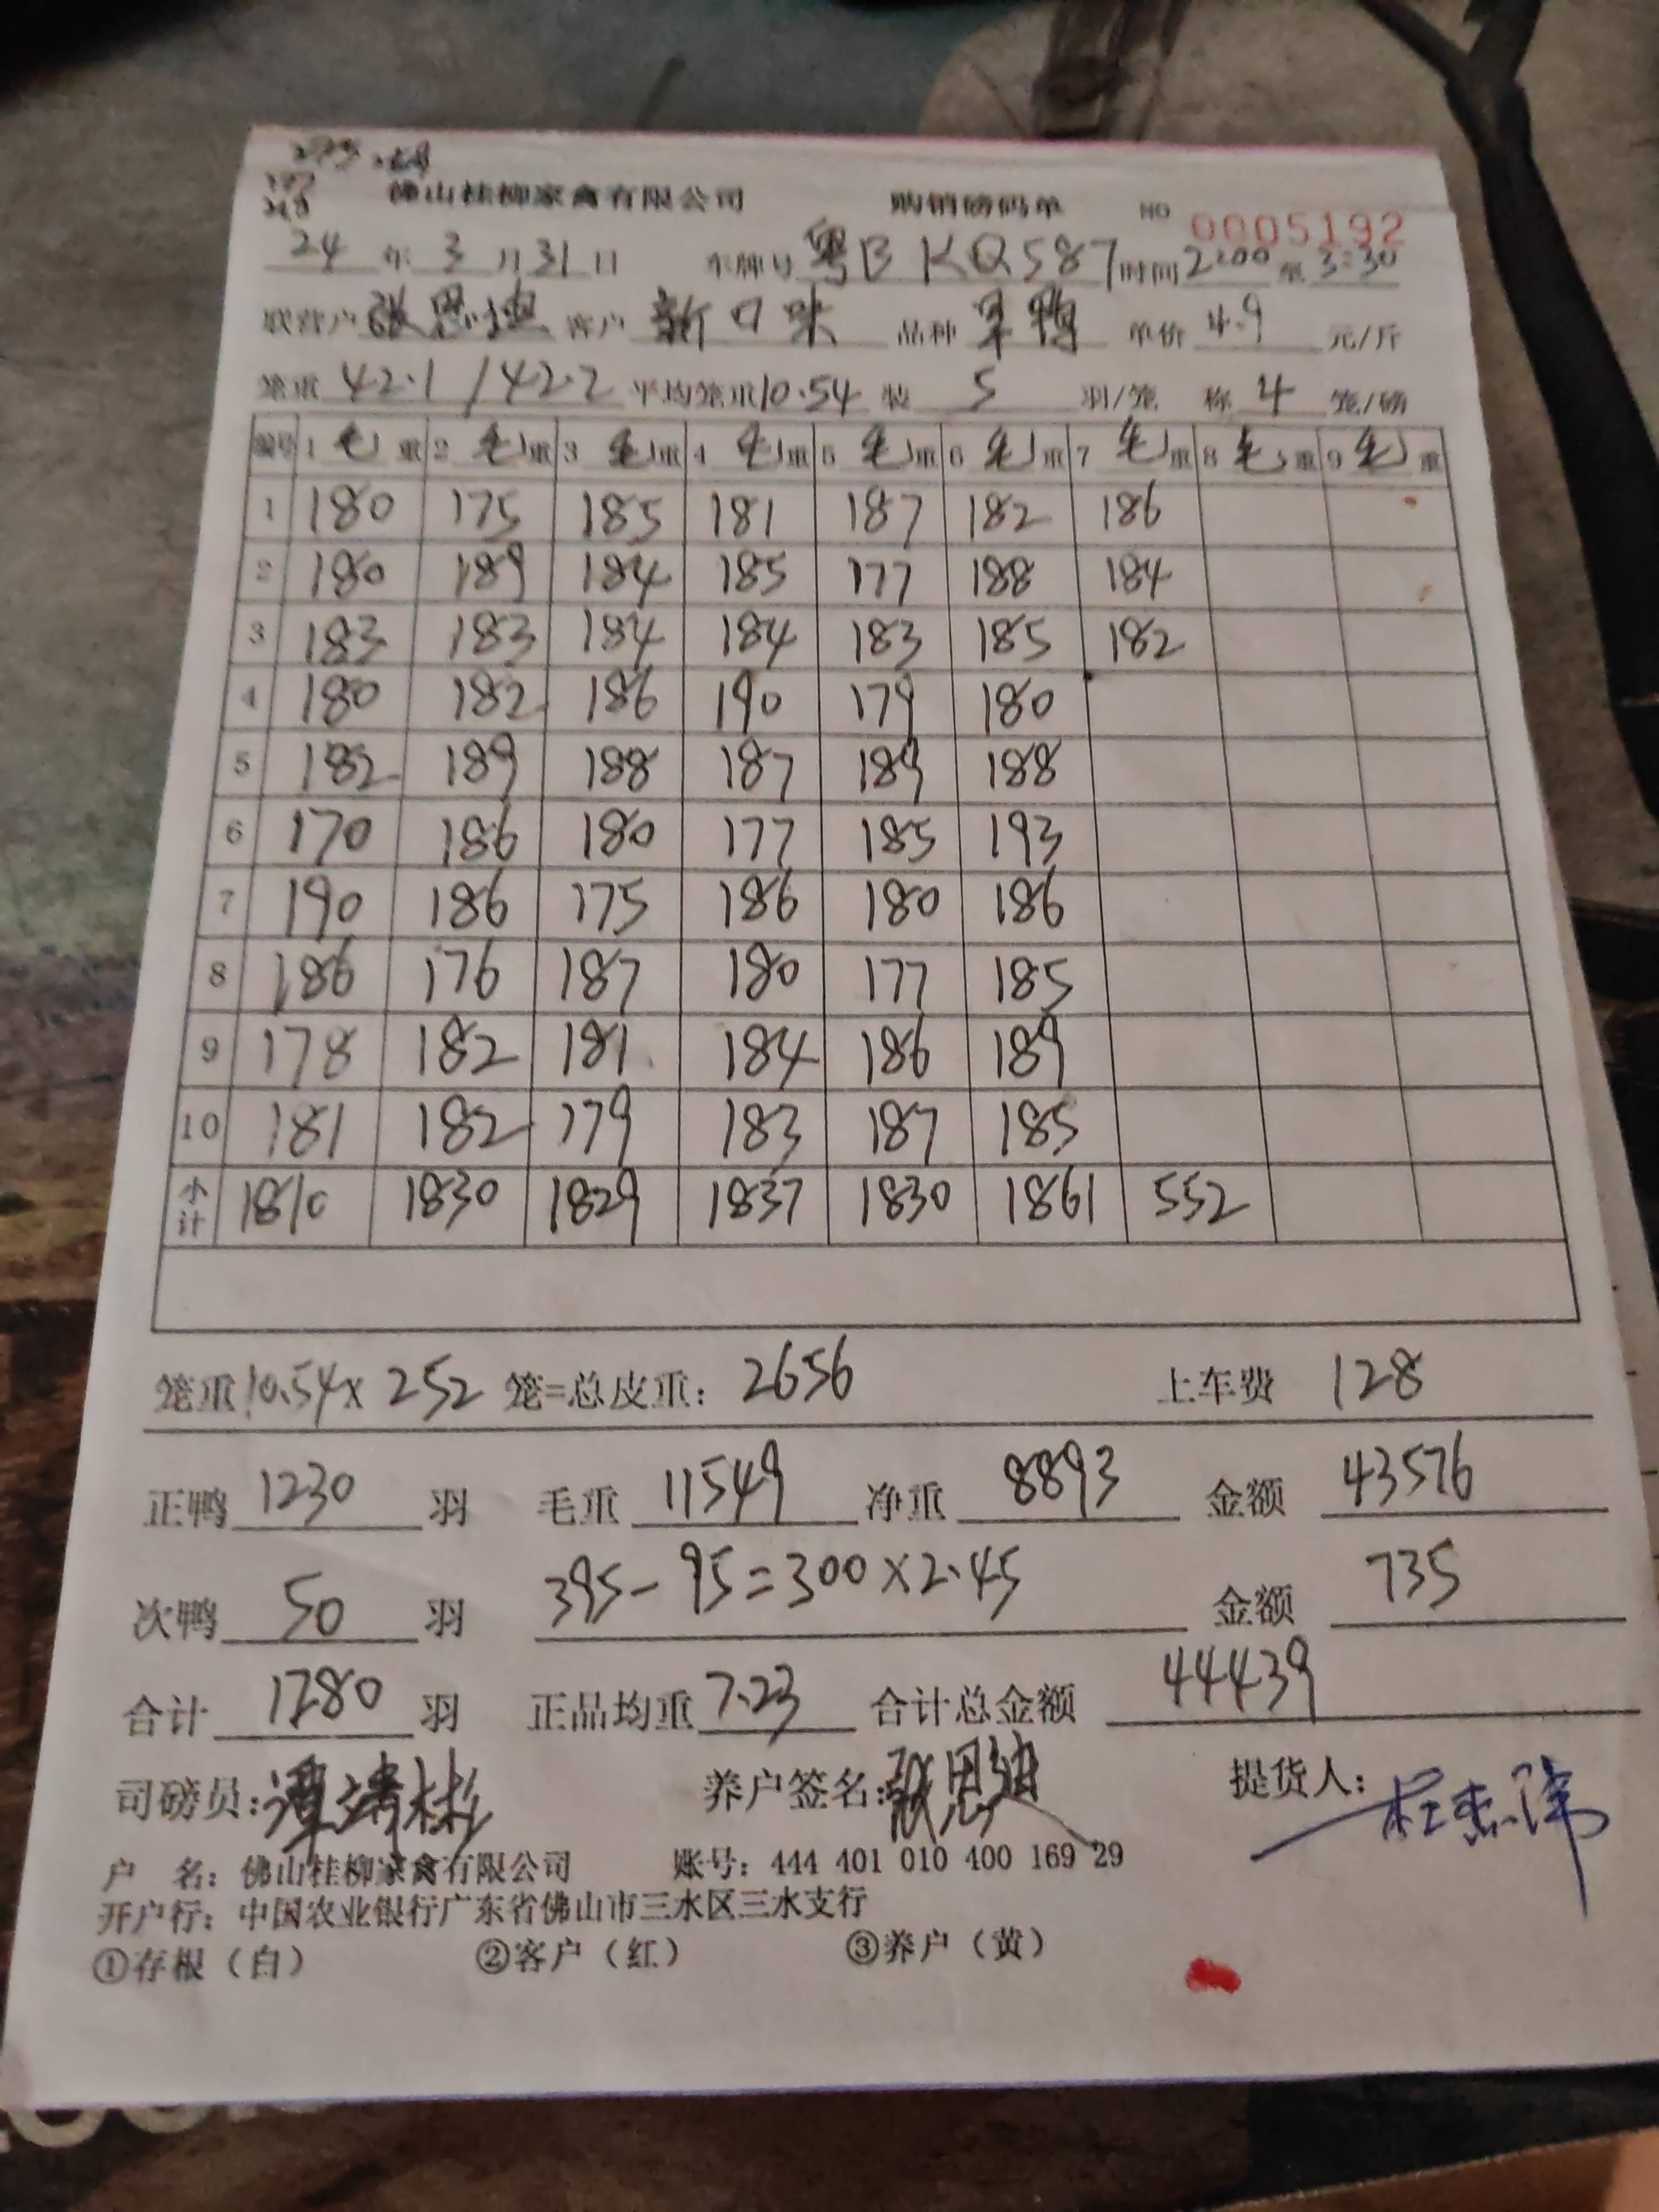 佛山桂柳家禽有限公司 购销磅码单 NO 0005192
24 年 3 月 31 日 车牌号 粤B KQ587 时间 2:00 至 3:30
联营户 张思迪 客户 新口味 品种 单价 4.9 元/斤
笼重 42.1 / 42.2 平均笼重 10.54 装 5 羽/笼 称 4 笼/磅
编号 1 毛重 2 毛重 3 毛重 4 毛重 5 毛重 6 毛重 7 毛重 8 毛重 9 毛重
1 180 175 185 181 187 182 186
2 180 189 184 185 177 188 184
3 183 183 184 184 183 185 182
4 180 182 186 190 179 180
5 182 189 188 187 189 188
6 170 186 180 177 185 193
7 190 186 175 186 180 186
8 186 176 187 180 177 185
9 178 182 181 184 186 189
10 181 182 179 183 187 185
小计 1810 1830 1829 1837 1830 1861 552
笼重 10.54 x 252 笼=总皮重: 2656 上车费 128
正鸭 1230 羽 毛重 11549 净重 8893 金额 43576
次鸭 50 羽 395 - 95 = 300 x 2.45 金额 735
合计 1280 羽 正品均重 7.23 合计总金额 44439
司磅员: 谭靖彬 养户签名: 张思迪 提货人:
户 名: 佛山桂柳家禽有限公司 账号: 444 401 010 400 169 29
开户行: 中国农业银行广东省佛山市三水区三水支行
①存根（白） ②客户（红） ③养户（黄）